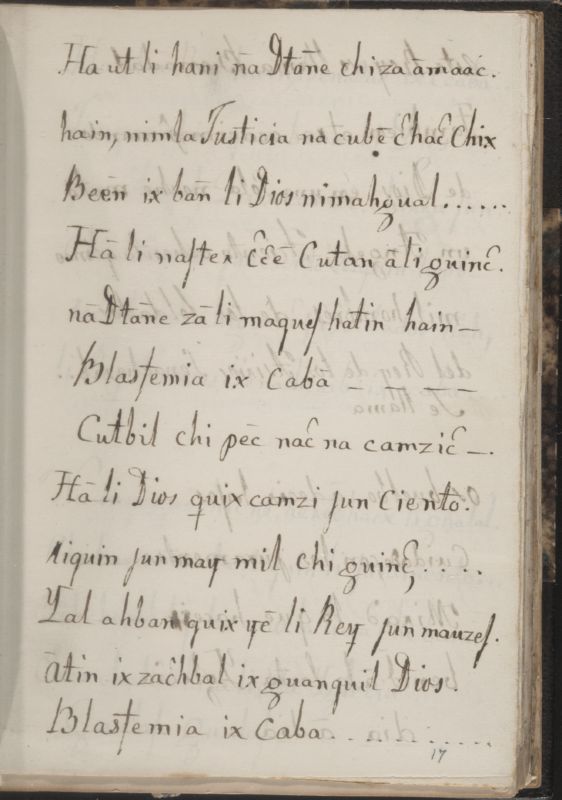 Ha ut li hani nā Dtāne chi za āmaac̄.
hain, nimla Justicia na cubē c̄hac̄ Chix
Beēn ix ban̄ li Dios nimahgual......
Hā li naʃter c̄c̄ē Cutan āli guinc̄.
nā Dtāne zā li maqueʃ hatin hain –
Blasfemia ix Cabā – – – –
Cutbil chi pēc̄ nac̄ na camzic̄ –.
Hā li Dios quix camzi jun Ciento.
riquin jun may mil chi guinc̄,....
Yal ahban quix yē li Rey jun mauzeʃ.
ātin ix zac̄hbal ix guanquil Dios.
Blasfemia ix Caba ..........
17